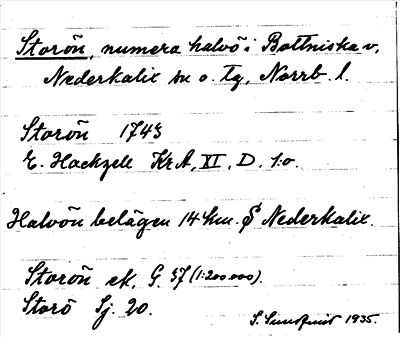 Storön, numera halvö i Bottniska v.
Nederkalix sn o. tg, Norrb. l.
Storön 1743
E. Hackzell KrA, XI, D. 1:o.
Halvön belägen 14 km. S Nederkalix.
Storön ek. G. 37 (1:200 000).
Storö Sj. 20.
S. Sundqvist 1935.